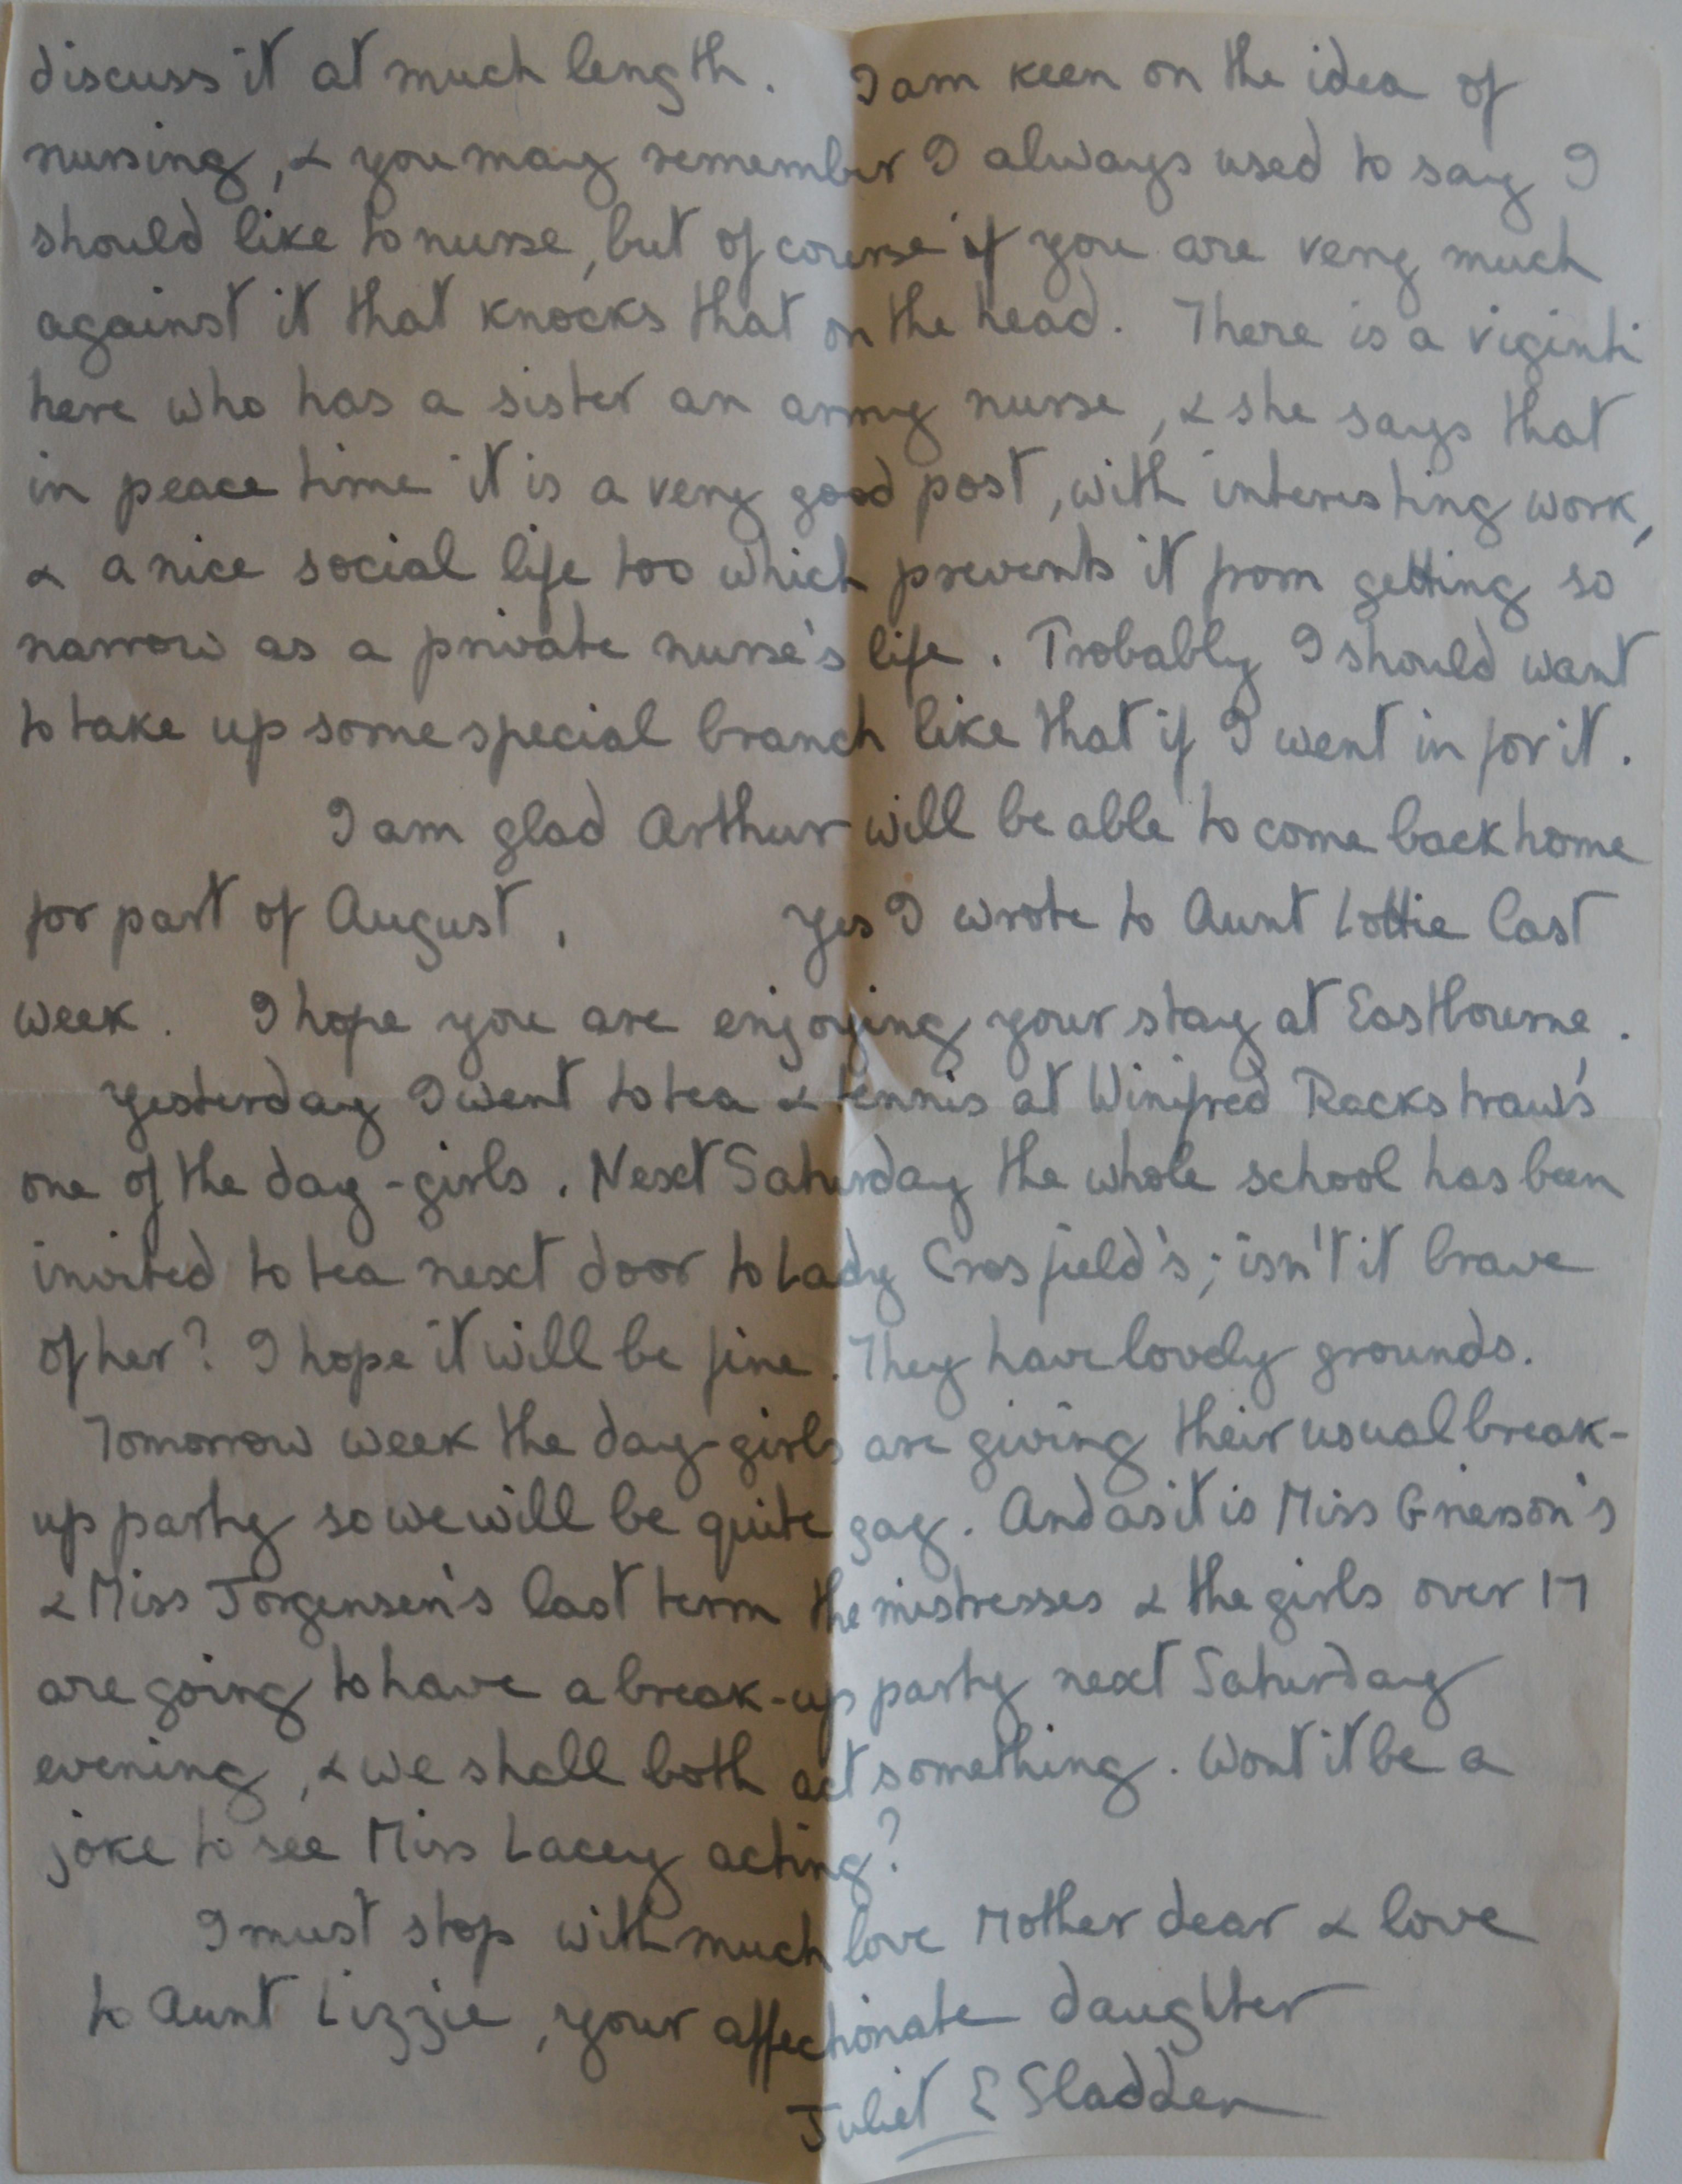 discuss it at much length. I am keen on the idea of
nursing, & you may remember I always used to say I
should like to nurse, but of course if you are very much
against it that knocks that on the head. There is a viginti
here who has a sister an army nurse, & she says that
in peace time it is a very good post, with interesting work,
& a nice social life too which prevents it from getting so
narrow as a private nurse's life. Probably I should want
to take up some special branch like that if I went in for it.
I am glad Arthur will be able to come back home
for part of August. Yes I wrote to Aunt Lottie last
week. I hope you are enjoying your stay at Eastbourne.
Yesterday I went to tea & tennis at Winifred Rackstraw's
one of the day-girls. Next Saturday the whole school has been
invited to tea next door to Lady Crosfield's; isn't it brave
of her? I hope it will be fine. They have lovely grounds.
Tomorrow week the day-girls are giving their usual break-
up party so we will be quite gay. And as it is Miss Grierson's
& Miss Jorgensen's last term the mistresses & the girls over 17
are going to have a break-up party next Saturday
evening, & we shall both act something. Wont it be a
joke to see Miss Lacey acting?
I must stop with much love Mother dear & love
to Aunt Lizzie, your affectionate daughter
Juliet E Sladden